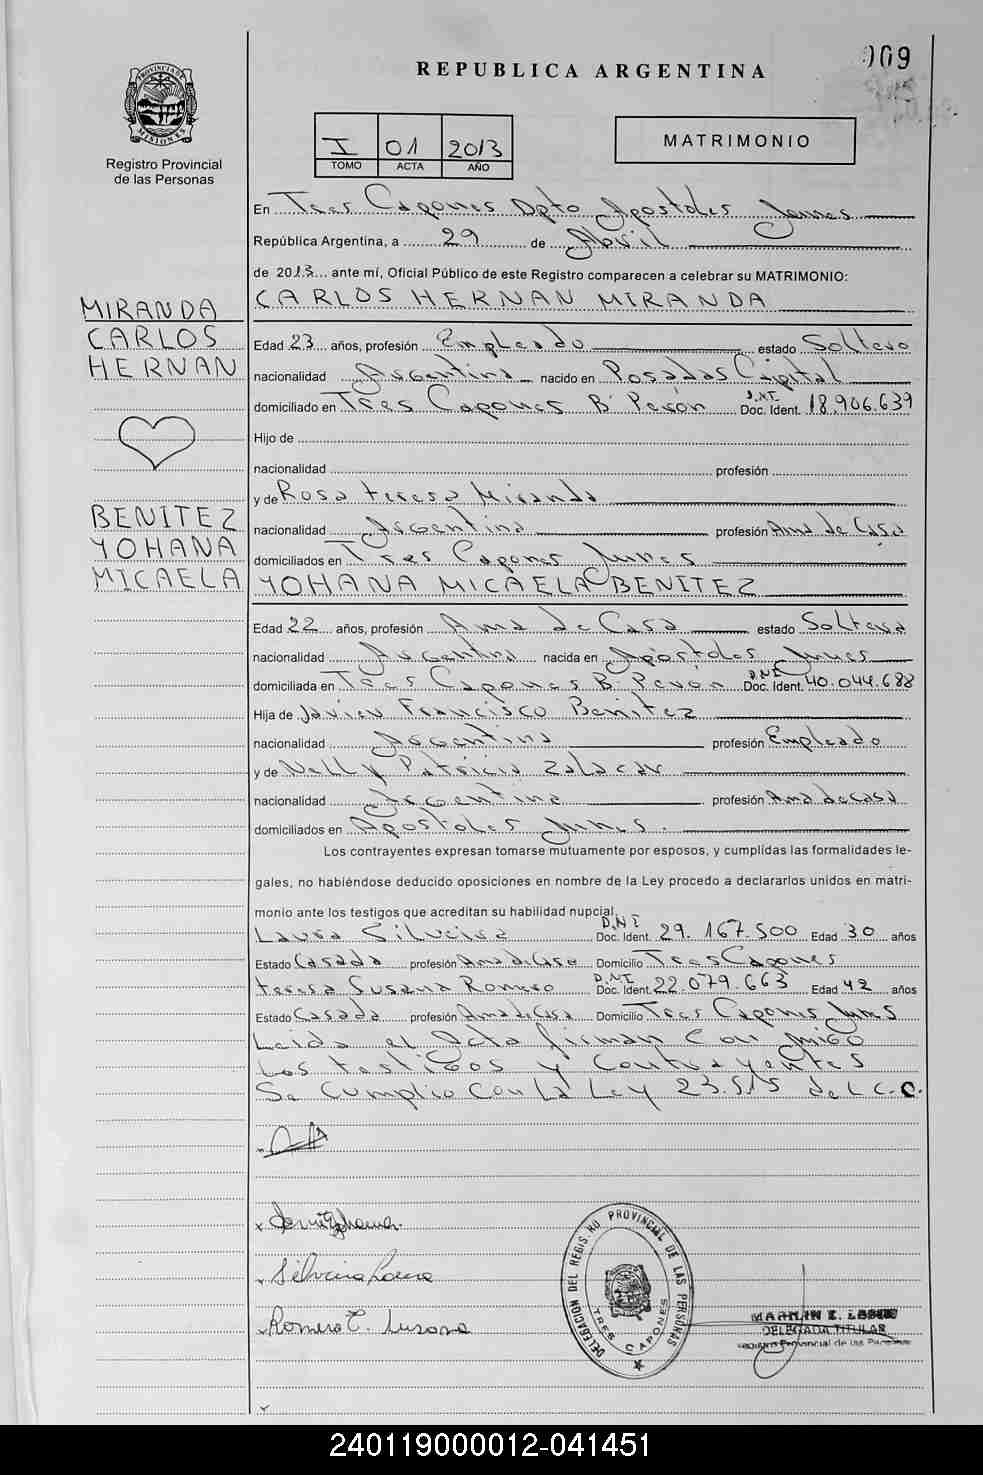 009
REPUBLICA ARGENTINA
PROVINCIA DE MISIONES
Registro Provincial
de las Personas
I 01 2013
TOMO ACTA AÑO
MATRIMONIO
En Tres Capones Dpto Apostoles
República Argentina, a 29 de Abril
de 2013 ante mí, Oficial Público de este Registro comparecen a celebrar su MATRIMONIO:
CARLOS HERNAN MIRANDA
MIRANDA
CARLOS
HERNAN
Edad 23 años, profesión Empleado estado Soltero
nacionalidad Argentina nacido en Posadas Capital
domiciliado en Tres Capones B° Perón D.N.I. Doc. Ident. 18.906.639
Hijo de
nacionalidad profesión
y de Rosa teresa Miranda
nacionalidad Argentina profesión Ama de Casa
domiciliados en Tres Capones
BENITEZ
YOHANA
MICAELA
YOHANA MICAELA BENITEZ
Edad 22 años, profesión Ama de Casa estado Soltera
nacionalidad Argentina nacida en Apóstoles
domiciliada en Tres Capones B° Perón D.N.I Doc. Ident. 40.044.688
Hija de Javier Francisco Benitez
nacionalidad Argentina profesión Empleado
y de Nelly Patricia Zalacar
nacionalidad Argentina profesión Ama de casa
domiciliados en Apostoles
Los contrayentes expresan tomarse mutuamente por esposos, y cumplídas las formalidades le-
gales, no habiéndose deducido oposiciones en nombre de la Ley procedo a declararlos unidos en matri-
monio ante los testigos que acreditan su habilidad nupcial.
Laura Silveira D.N.I Doc. Ident. 29.167.500 Edad 30 años
Estado Casada profesión Ama de Casa Domicilio Tres Capones
teresa Susana Romero D.N.I Doc. Ident. 22.079.663 Edad 42 años
Estado Casada profesión Ama de Casa Domicilio Tres Capones
Leida el Acta firman con migo
Los testigos y Contrayentes
Se cumplio con La Ley 23.515 del C.C.
Silveira Laura
Romero T. Susana
DELEGACION DEL REGISTRO PROVINCIAL DE LAS PERSONAS
TRES CAPONES
DELEGADA TITULAR
Registro Provincial de las Personas
240119000012-041451